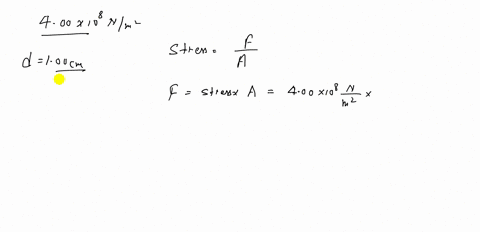 4.00 x10⁸ N/m²
d = 1.00cm
Stress = F/A
F = stress x A = 4.00 x10⁸ N/m² x